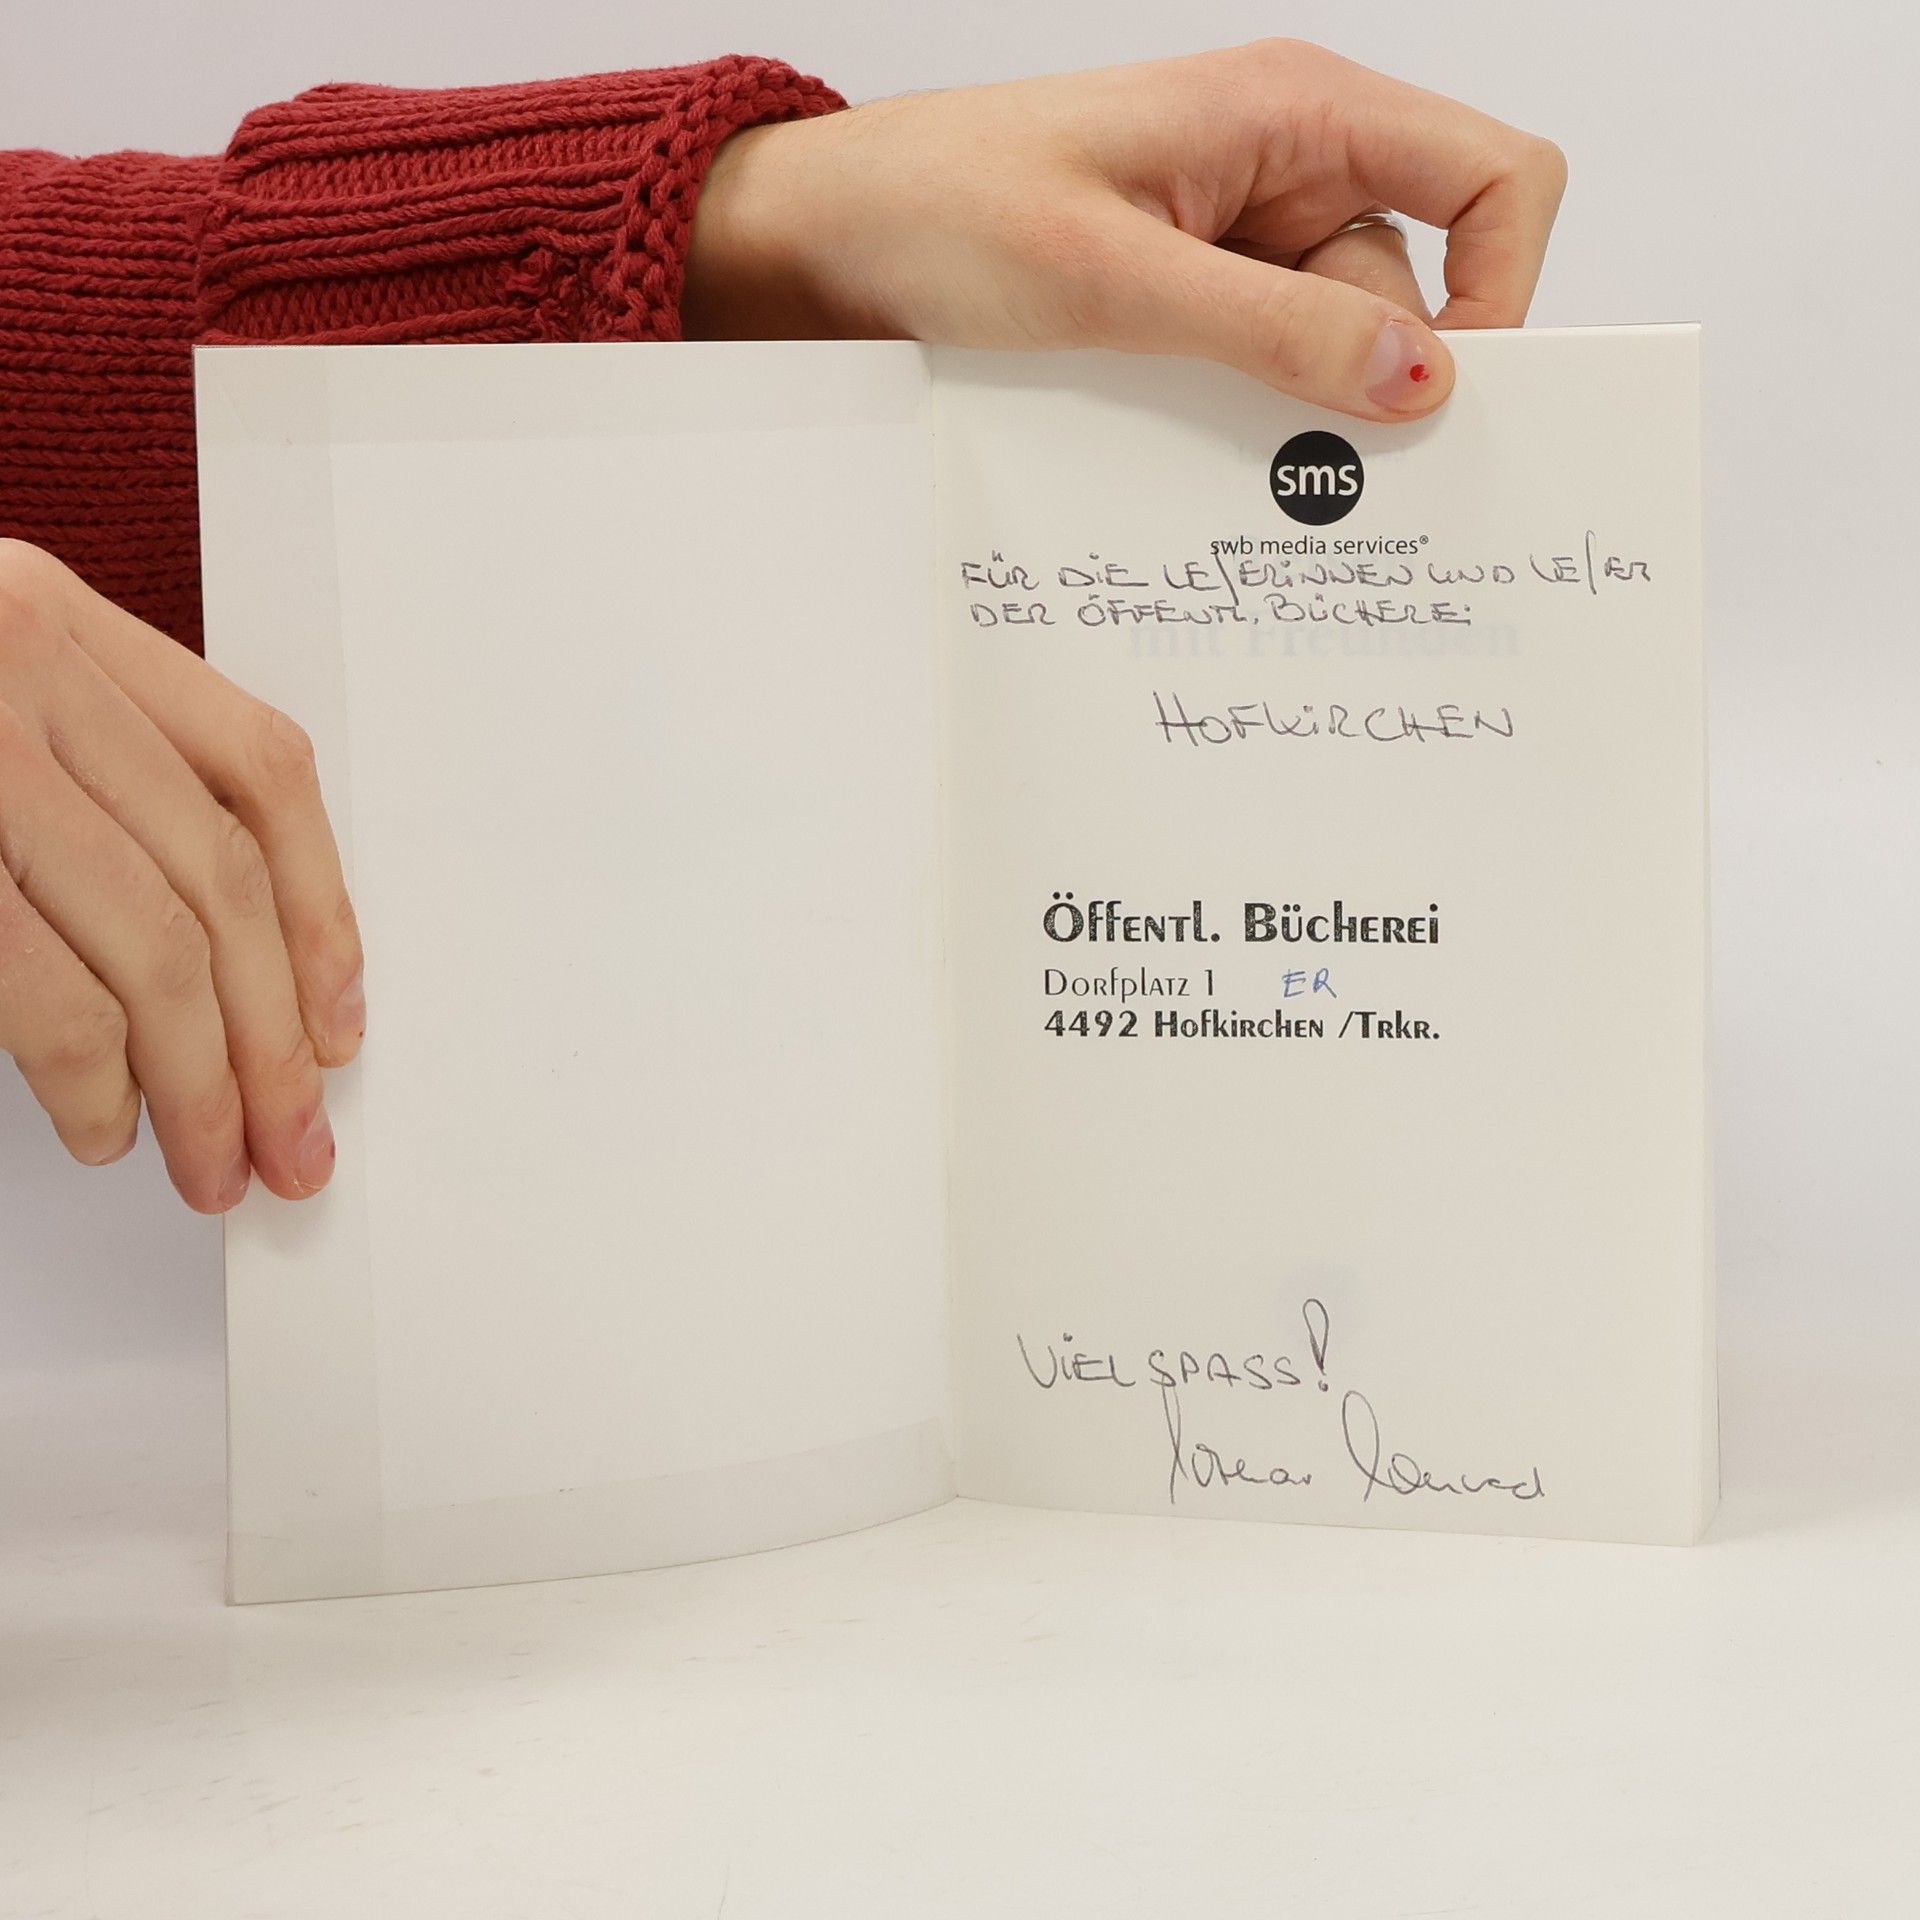 sms
swb media services®
FÜR DIE LESERINNEN UND LESER
DER ÖFFENTL. BÜCHEREI
mit Freunden
HOFKIRCHEN
Öffentl. Bücherei
Dorfplatz 1 ER
4492 Hofkirchen /Trkr.
VIEL SPASS!